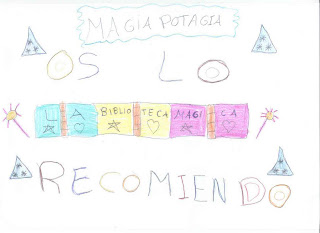 MAGIA POTAGIA
OS LO
LA BIBLIOTECA MAGICA
RECOMIENDO